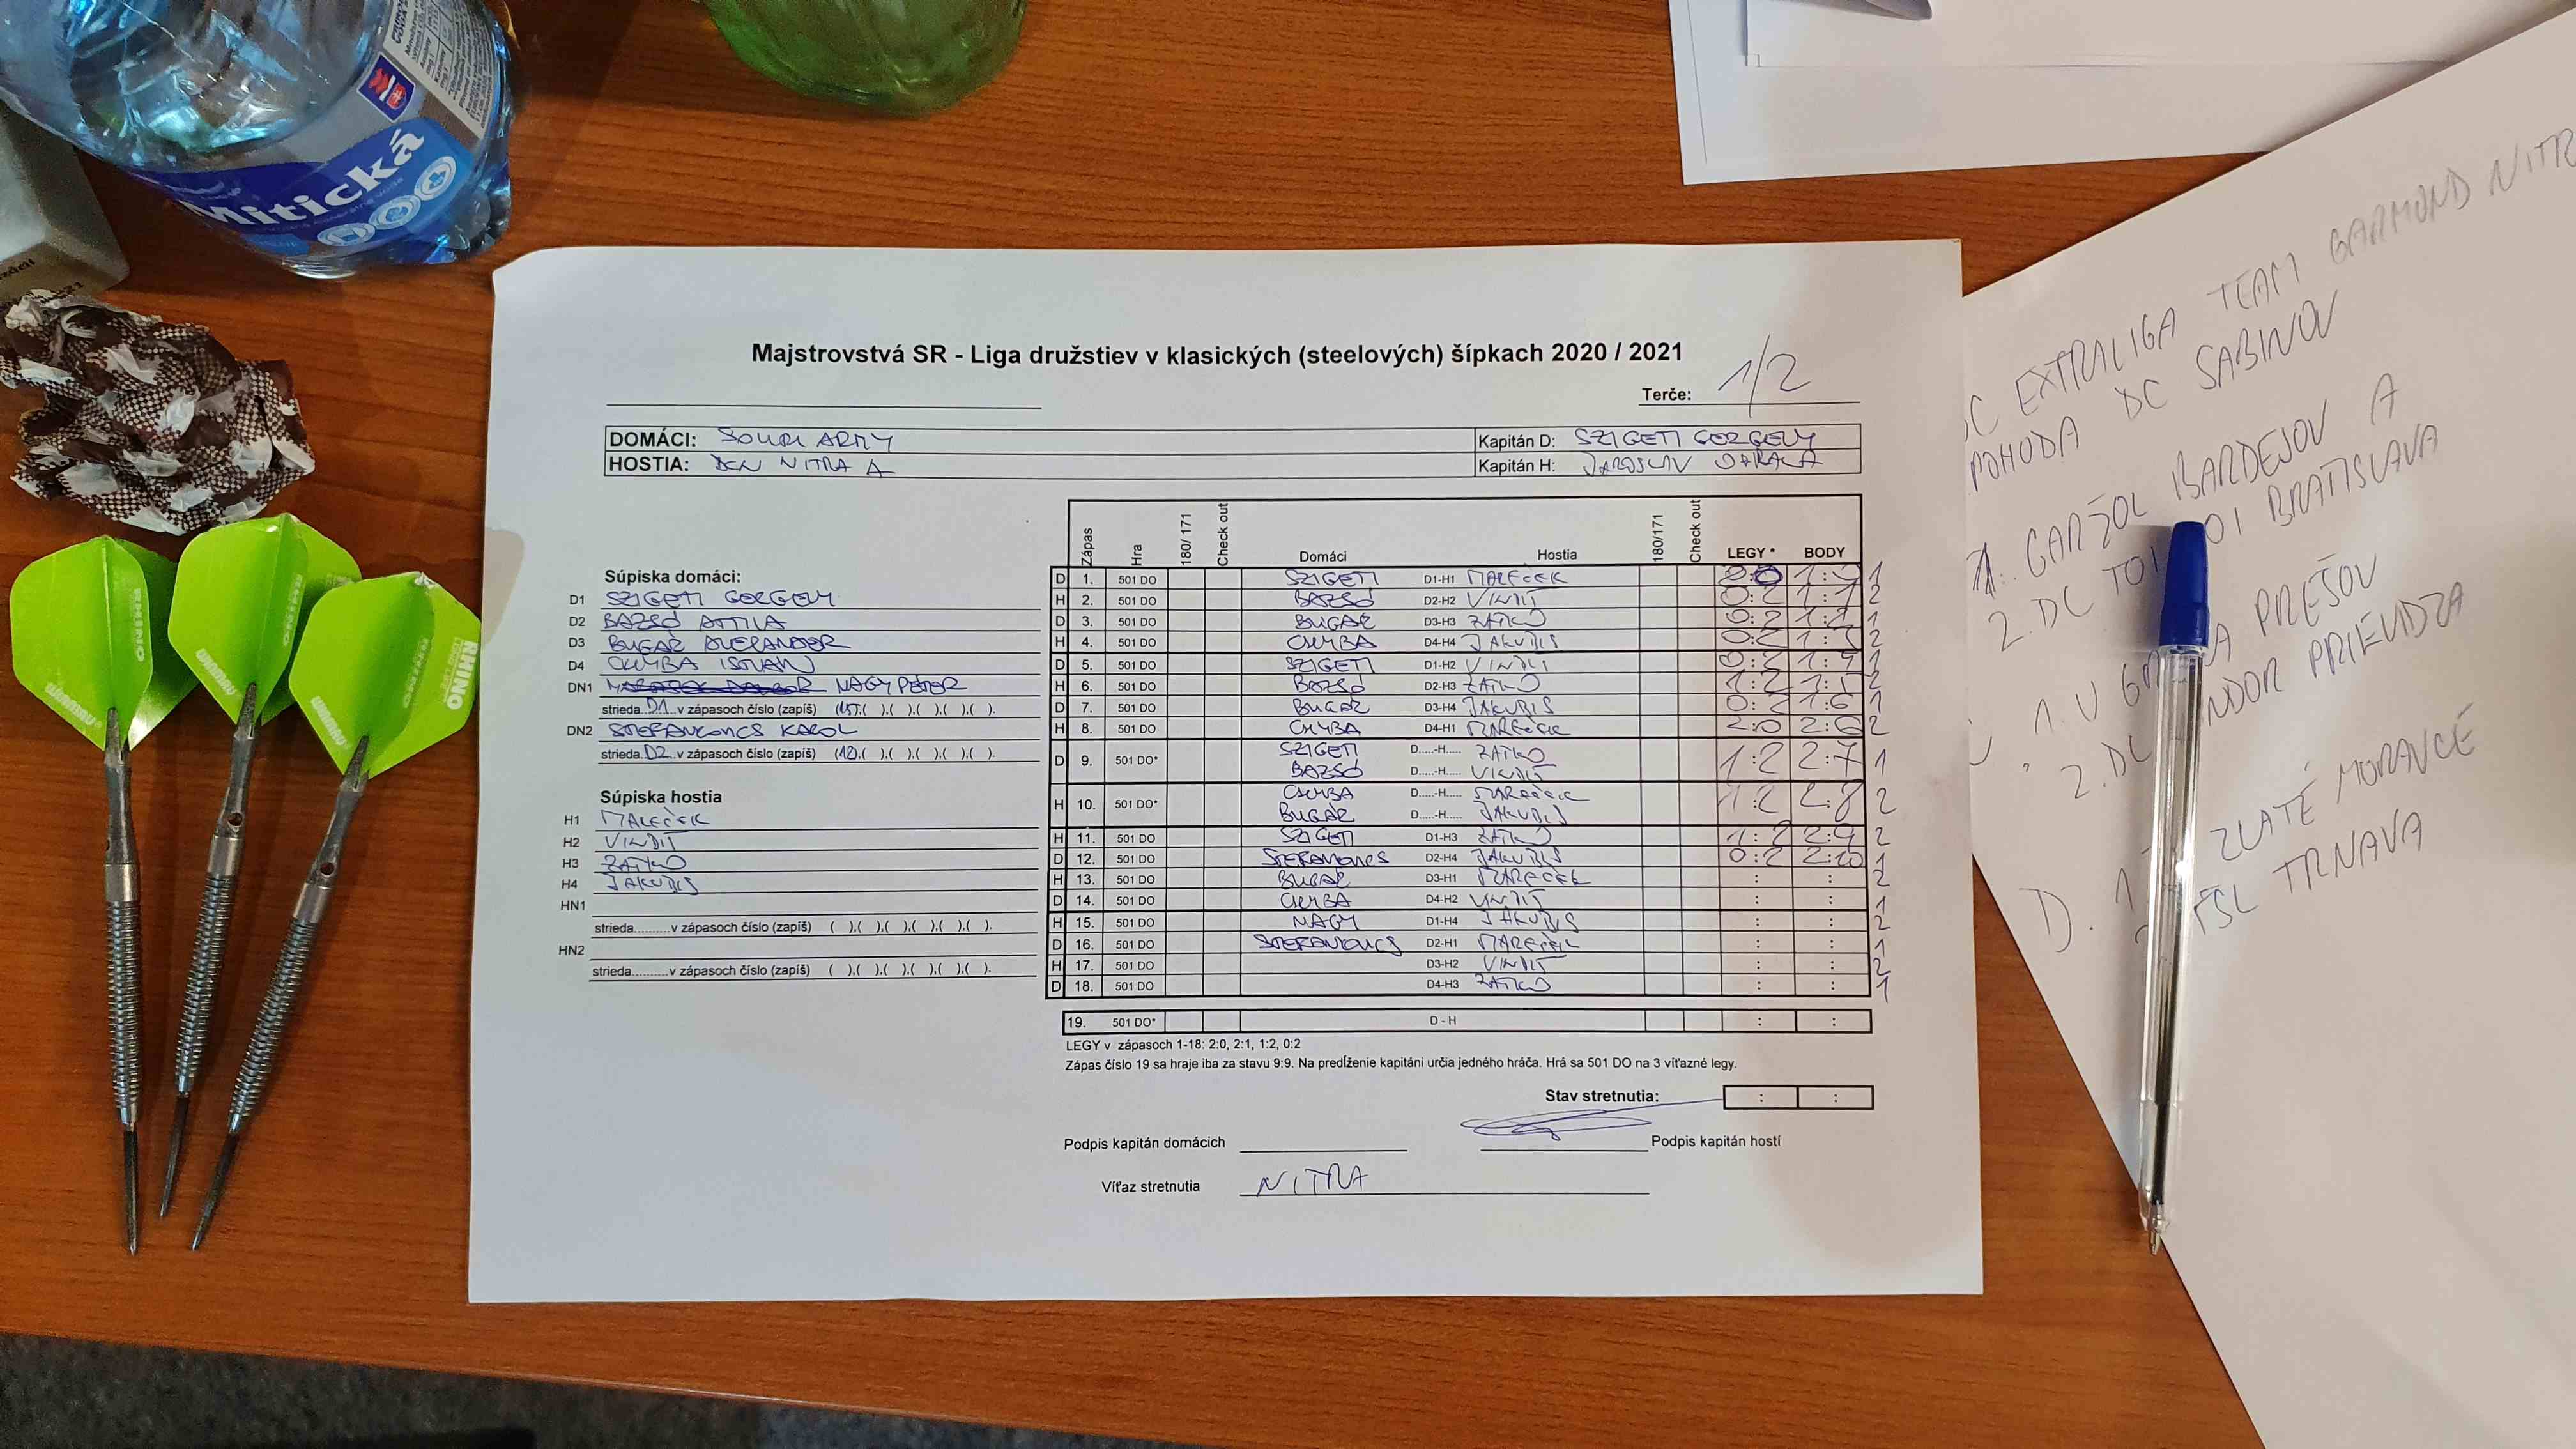 Mitická
Majstrovstvá SR - Liga družstiev v klasických (steelových) šípkach 2020 / 2021
Terče: 1/2
DOMÁCI: SOUM ARMY Kapitán D: SZIGETI GERGELY
HOSTIA: DCN NITRA A Kapitán H: JAROSLAV
Zápas Hra 180/ 171 Check out Domáci Hostia 180/171 Check out LEGY * BODY
Súpiska domáci:
D1 SZIGETI GERGELY
D2 BAZSÓ ATTILA
D3 BUGÁR ALEXANDER
D4 CHYBA ISTVAN
DN1 NAGY PÉTER
strieda..D1...v zápasoch číslo (zapíš) (15),( ),( ),( ),( ),( ).
DN2 STEFANKOVICS KAROL
strieda..D2...v zápasoch číslo (zapíš) (12),( ),( ),( ),( ),( ).
Súpiska hostia
H1 MAREČEK
H2 VINDIŠ
H3 ZAŤKO
H4 JAKUBIS
HN1
strieda..........v zápasoch číslo (zapíš) ( ),( ),( ),( ),( ),( ).
HN2
strieda..........v zápasoch číslo (zapíš) ( ),( ),( ),( ),( ),( ).
D 1. 501 DO SZIGETI D1-H1 MAREČEK 1
H 2. 501 DO BAZSÓ D2-H2 VINDIŠ 0:2 1:1 2
D 3. 501 DO BUGÁR D3-H3 ZAŤKO 0:2 1:2 1
H 4. 501 DO CHYBA D4-H4 JAKUBIS 0:2 1:3 2
D 5. 501 DO SZIGETI D1-H2 VINDIŠ 0:2 1:4 1
H 6. 501 DO BAZSÓ D2-H3 ZAŤKO 1:2 1:5 2
D 7. 501 DO BUGÁR D3-H4 JAKUBIS 0:2 1:6 1
H 8. 501 DO CHYBA D4-H1 MAREČEK 2:0 2:6 2
D 9. 501 DO* SZIGETI D.....-H..... ZAŤKO 1:2 2:7 1
BAZSÓ D.....-H..... VINDIŠ
H 10. 501 DO* CHYBA D.....-H..... MAREČEK 1:2 2:8 2
BUGÁR D.....-H..... JAKUBIS
H 11. 501 DO SZIGETI D1-H3 ZAŤKO 1:2 2:9 2
D 12. 501 DO STEFANKOVICS D2-H4 JAKUBIS 0:2 2:10 1
H 13. 501 DO BUGÁR D3-H1 MAREČEK : : 2
D 14. 501 DO CHYBA D4-H2 VINDIŠ : : 1
H 15. 501 DO NAGY D1-H4 JAKUBIS : : 2
D 16. 501 DO STEFANKOVICS D2-H1 MAREČEK : : 1
H 17. 501 DO D3-H2 VINDIŠ : : 2
D 18. 501 DO D4-H3 ZAŤKO : : 1
19. 501 DO* D - H : :
LEGY v zápasoch 1-18: 2:0, 2:1, 1:2, 0:2
Zápas číslo 19 sa hraje iba za stavu 9:9. Na predĺženie kapitáni určia jedného hráča. Hrá sa 501 DO na 3 víťazné legy.
Stav stretnutia: : :
Podpis kapitán domácich Podpis kapitán hostí
Víťaz stretnutia NITRA
EXTRALIGA TEAM GARMOND NITR
POHODA DC SABINOV
1. GARŽOL BARDEJOV A
2. DC BRATISLAVA
1. U PREŠOV
2. DC NDOR PRIEVIDZA
D. 1. ZLATÉ MORAVCE
TRNAVA
RHINO
RHINO
WINMAU
WINMAU